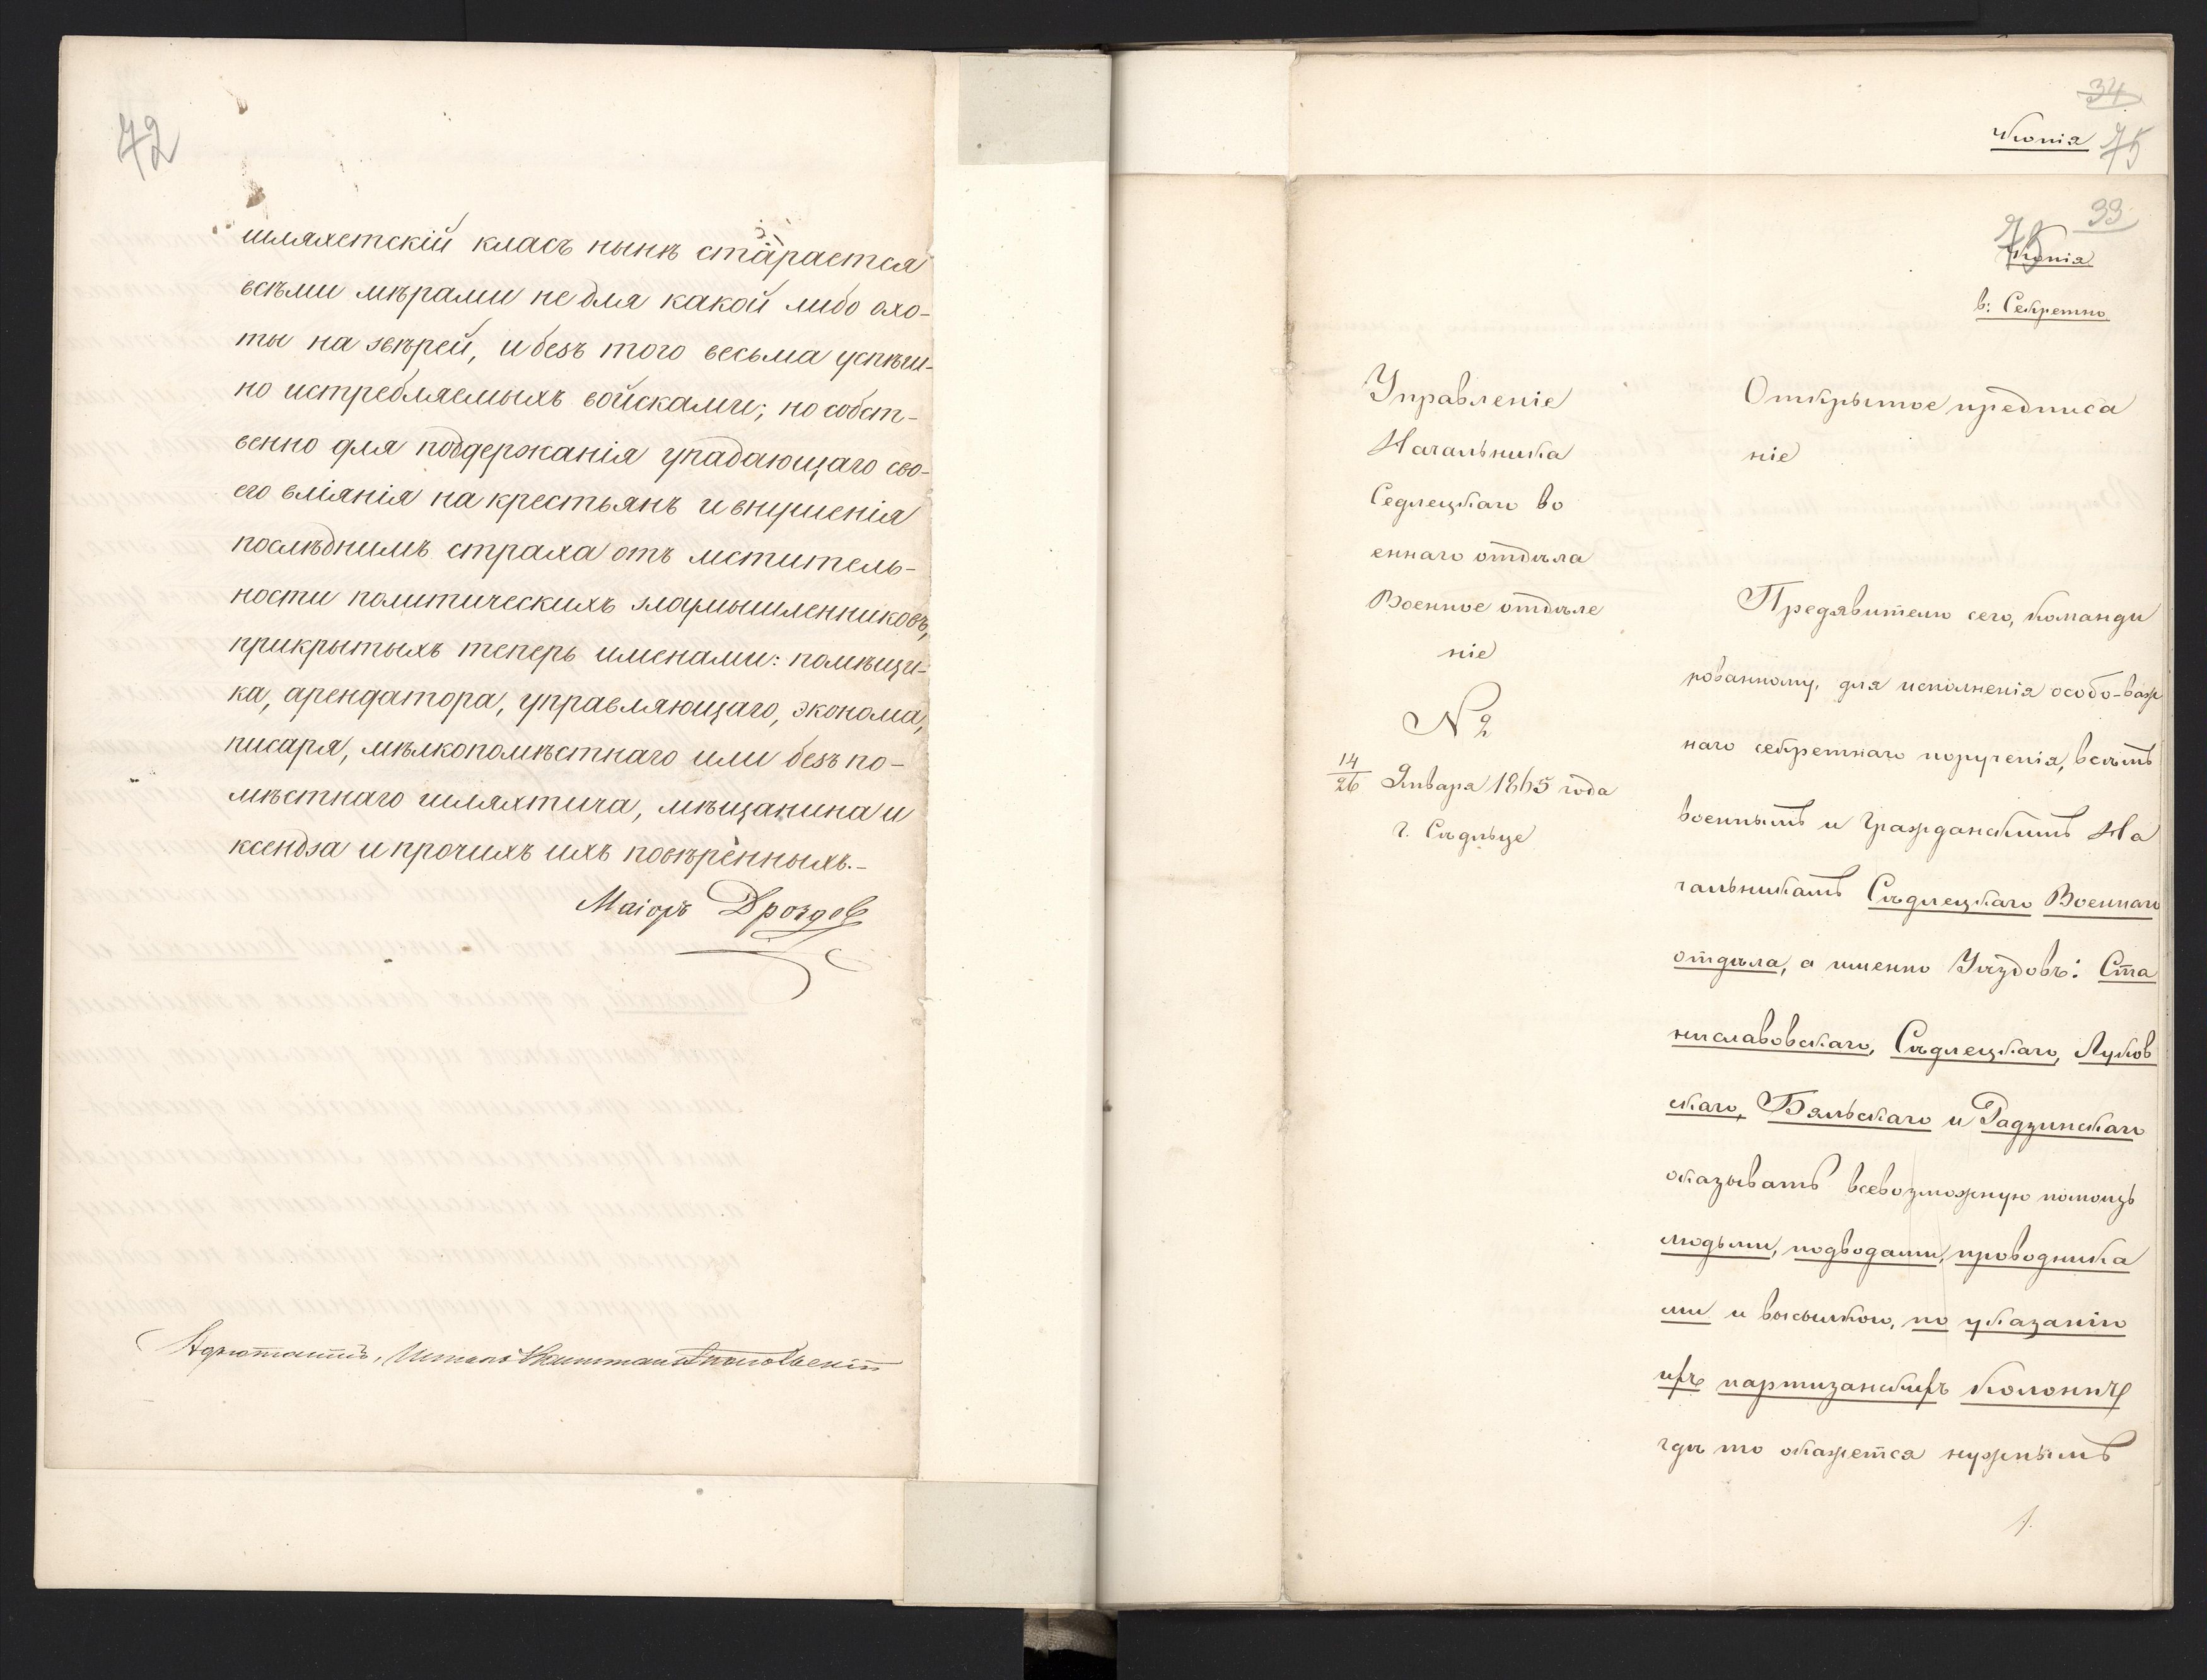 72
шляхетскій класъ нынѣ старается
всѣми мѣрами не для какой либо охо-
ты на звѣрей, и безъ того весьма успѣш-
но истребляемыхъ войсками; но собст-
венно для поддержанія упадающаго сво-
его вліянія на крестьянъ и внушенія
послѣднимъ страха отъ мститель-
ности политическихъ злоумышленниковъ,
прикрытыхъ теперь именами: помѣщи-
ка, арендатора, управляющаго, эконома,
писаря, мѣлкопомѣстнаго или безъ по-
мѣстнаго шляхтича, мѣщанина и
ксендза и прочихъ ихъ повѣренныхъ.-
Маіоръ Дроздов
Адъютантъ, Штабс Капитан
34
Копія 75
33
75
Копія
в: Секретно
Управленіе
Начальника
Седлецкаго во
еннаго отдѣла
Военное отдѣле
ніе
№ 2
14/26 Января 1865 года
г. Сѣдльце
Открытое предписа
ніе
Предявителю сего, команди
рованному, для исполненія особо-важ
наго секретнаго порученія, всѣмъ
военнымъ и Гражданскимъ На
чальникамъ Сѣдлецкаго Военнаго
отдѣла, а именно Уѣздовъ: Ста
ниславовскаго, Сѣдлецкаго, Луков
скаго, Бяльскаго и Радзинскаго
оказывать всевозможную помощь
людьми, подводами, проводника
ми и высылкою, по указанію
ихъ партизанскихъ колоннъ
гдѣ то окажется нужнымъ
1.